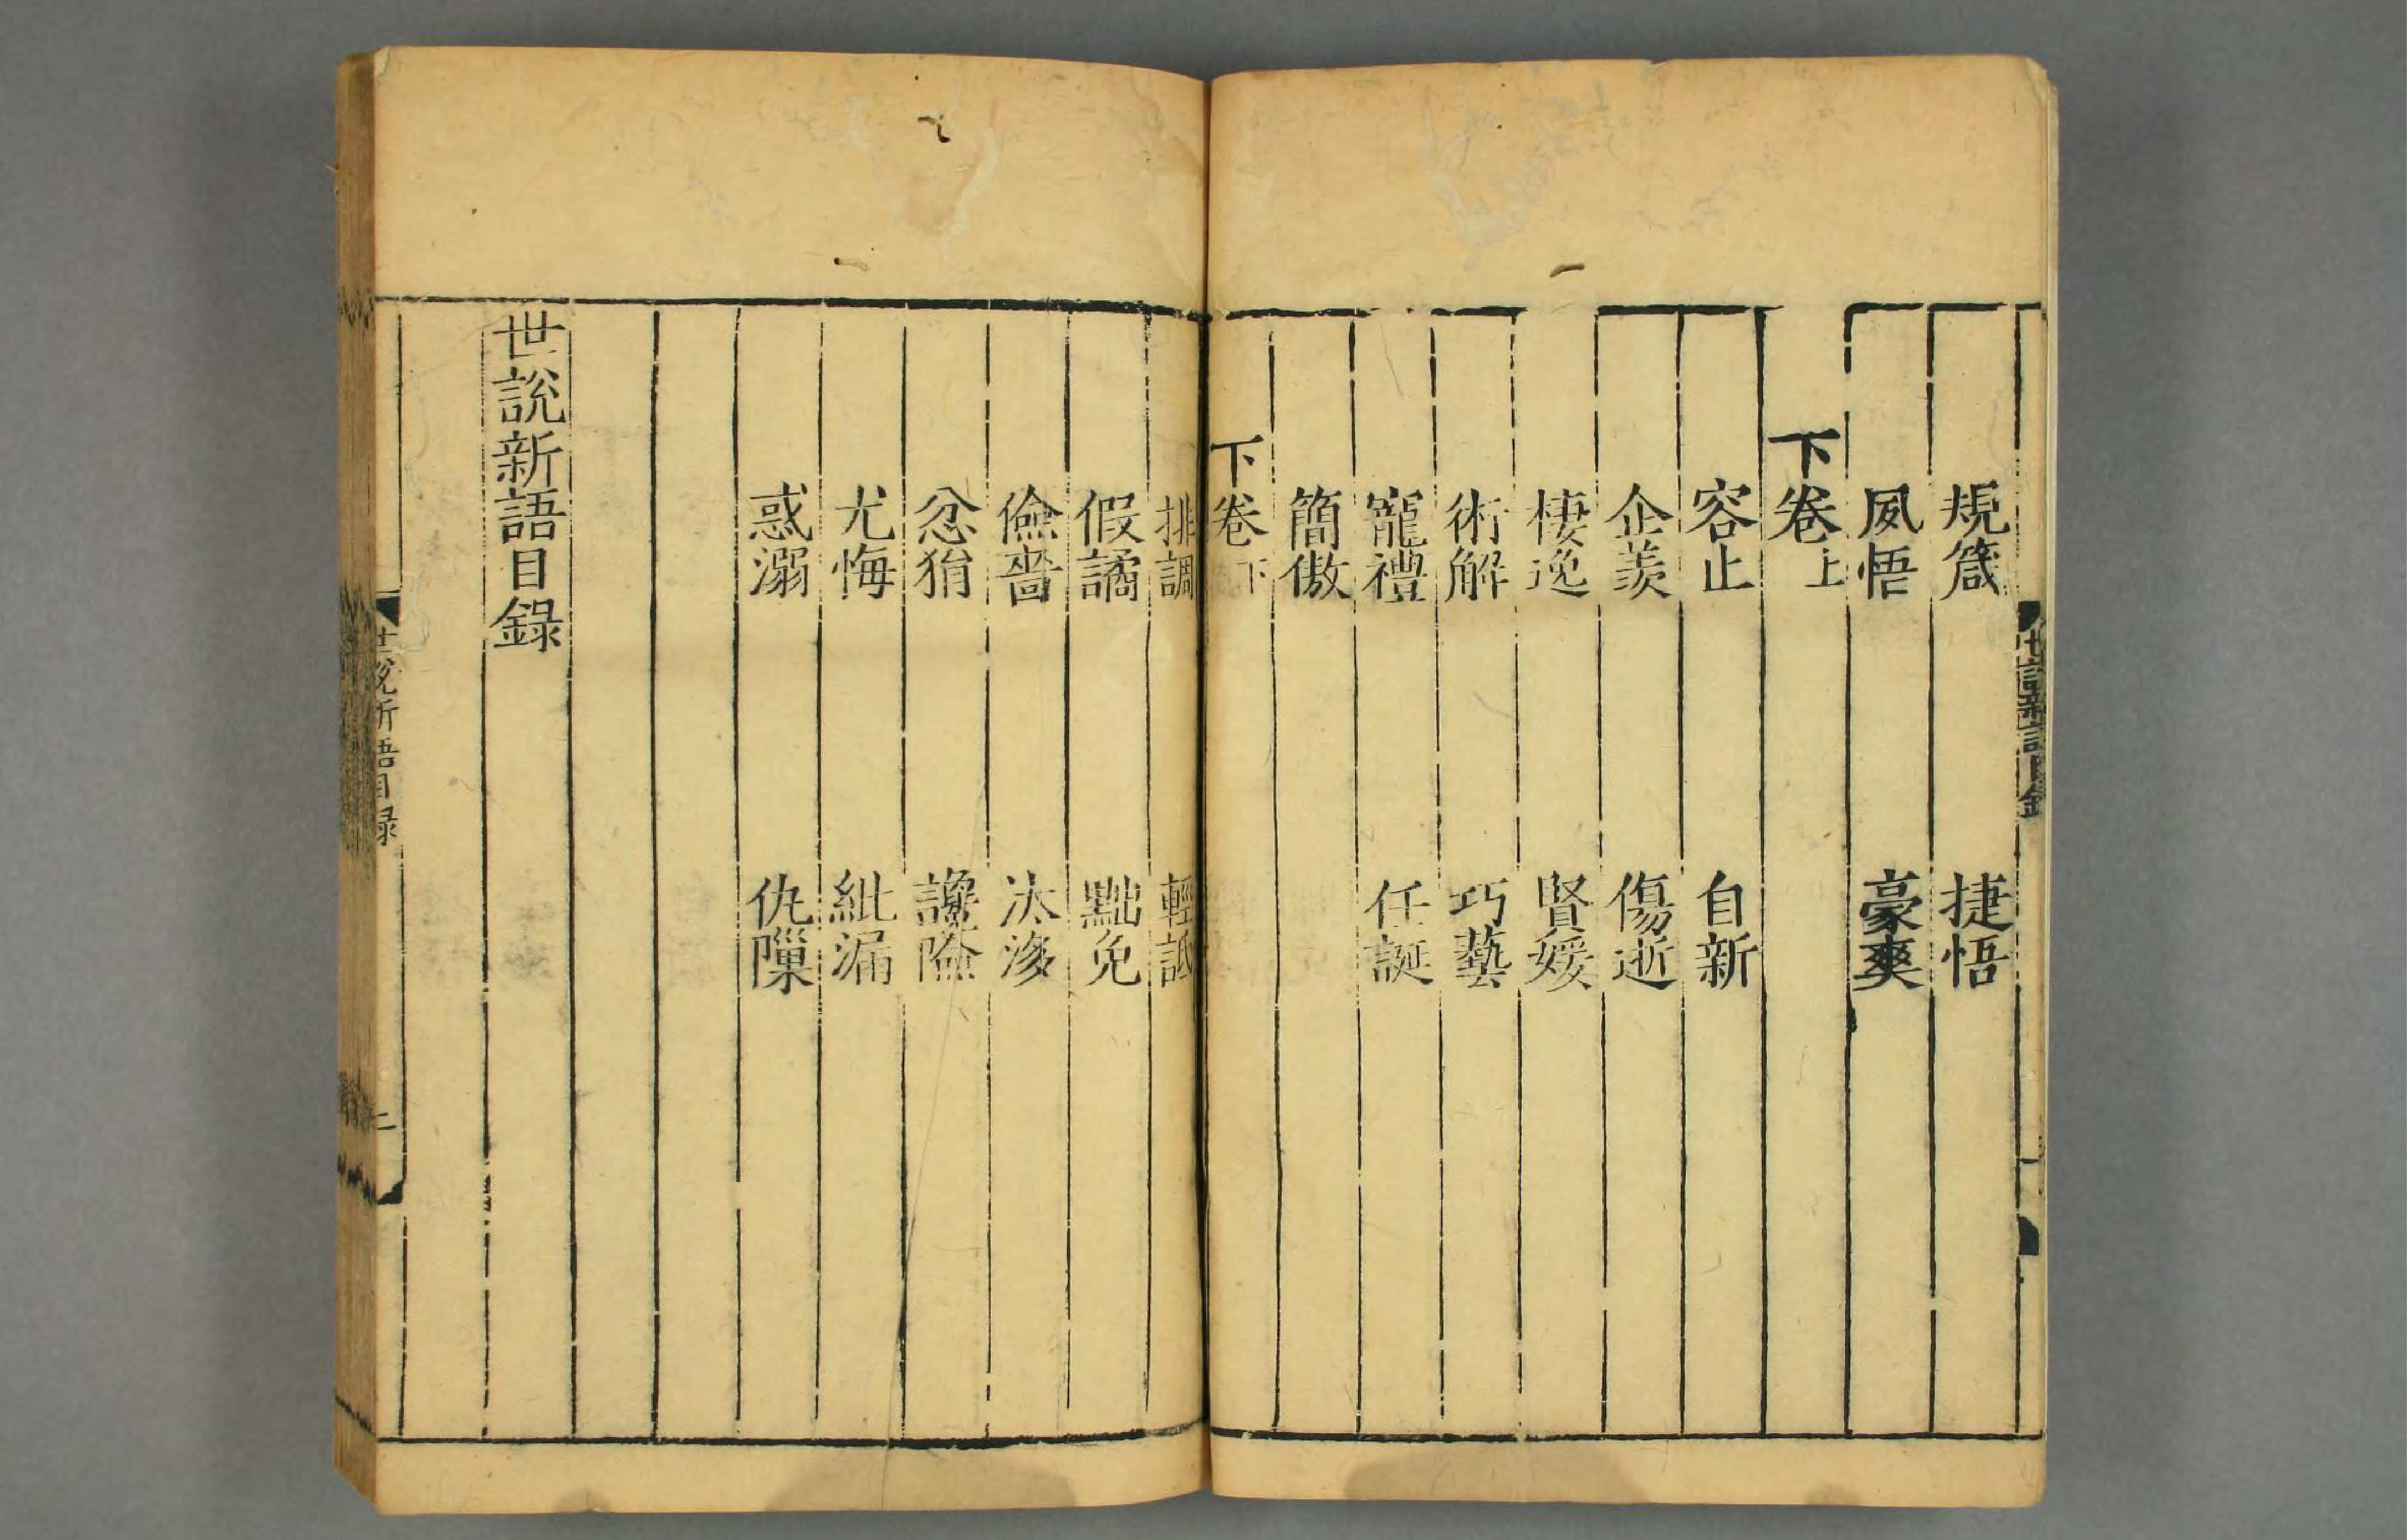 世說新語目錄
規箴 捷悟
夙悟 豪爽
下卷上
容止 自新
企羨 傷逝
棲逸 賢媛
術解 巧藝
寵禮 任誕
簡傲
下卷下
排調 輕詆
假譎 黜免
儉嗇 汰侈
忿狷 讒險
尤悔 紕漏
惑溺 仇隟
世說新語目錄
世說新語目錄 二